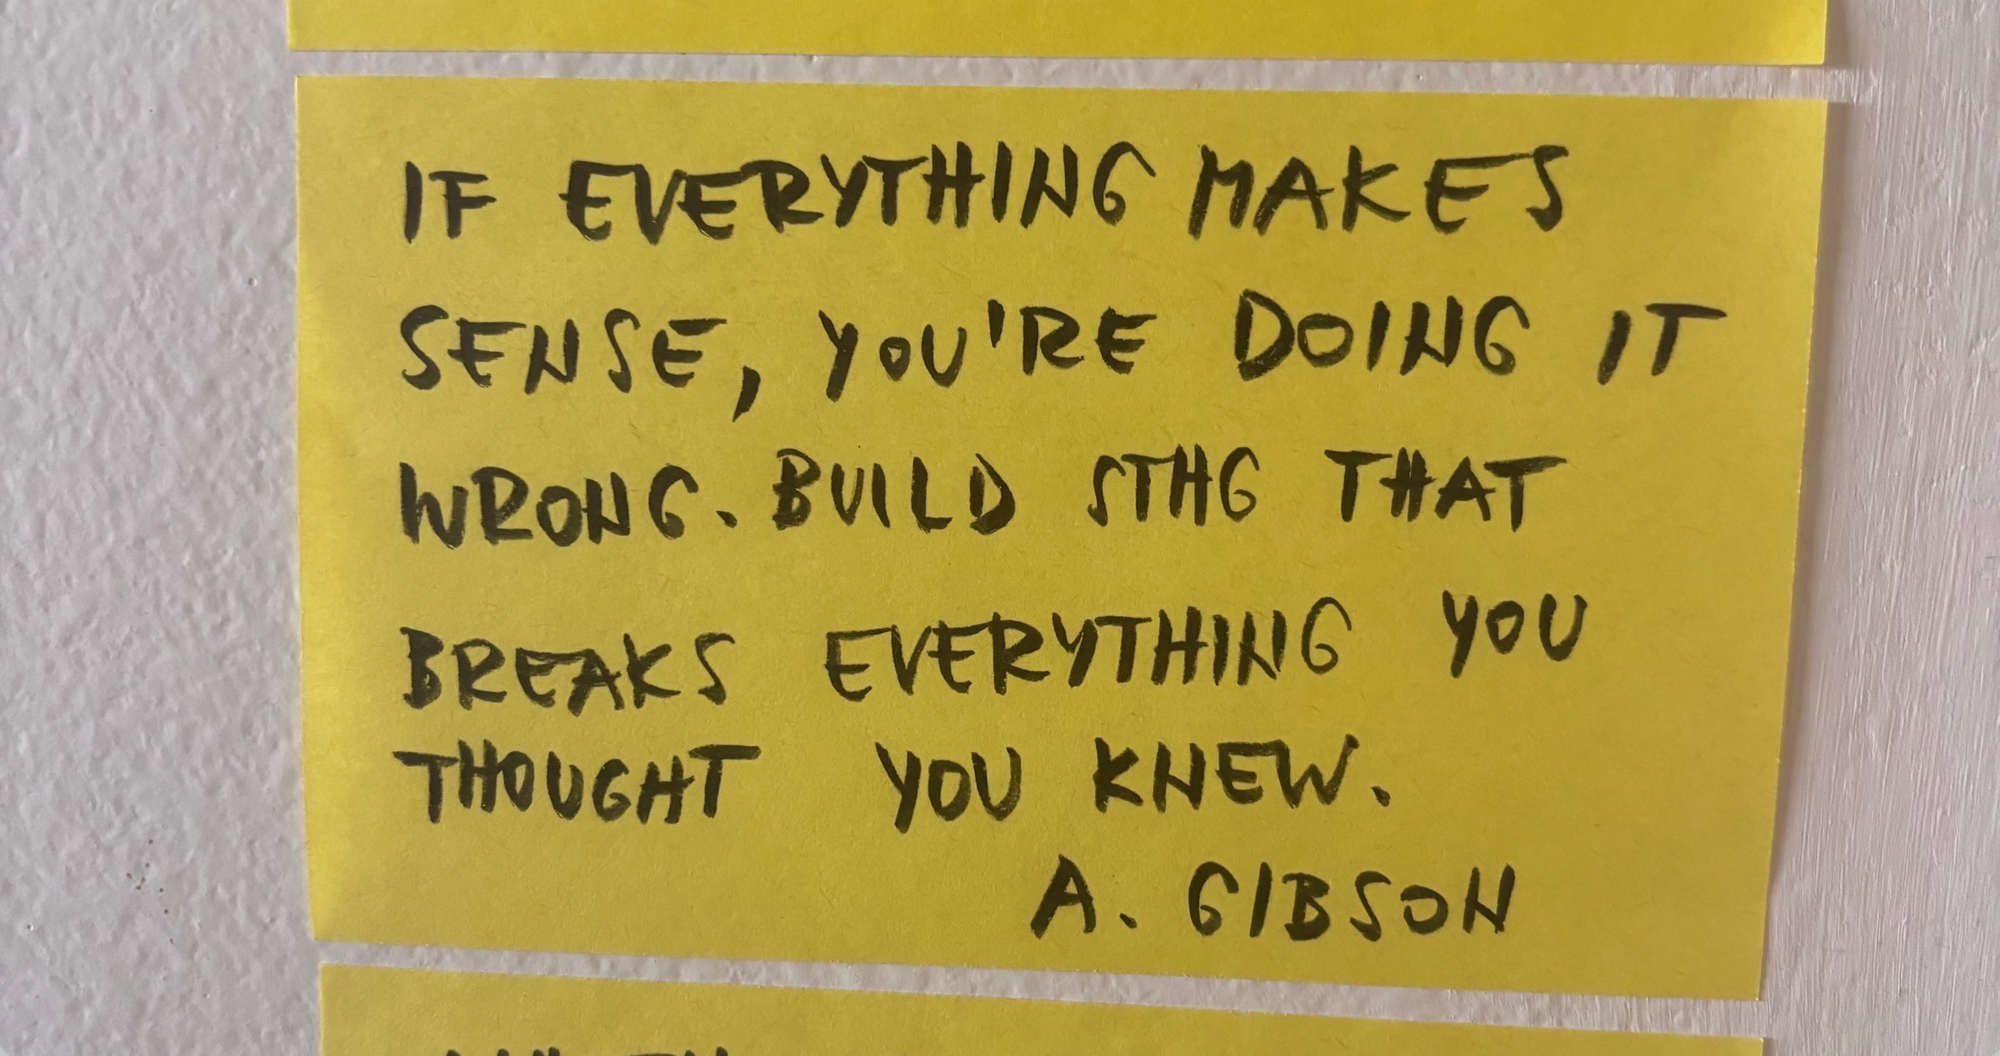 IF EVERYTHING MAKES
SENSE, YOU'RE DOING IT
WRONG. BUILD STHG THAT
BREAKS EVERYTHING YOU
THOUGHT YOU KNEW.
A. GIBSON